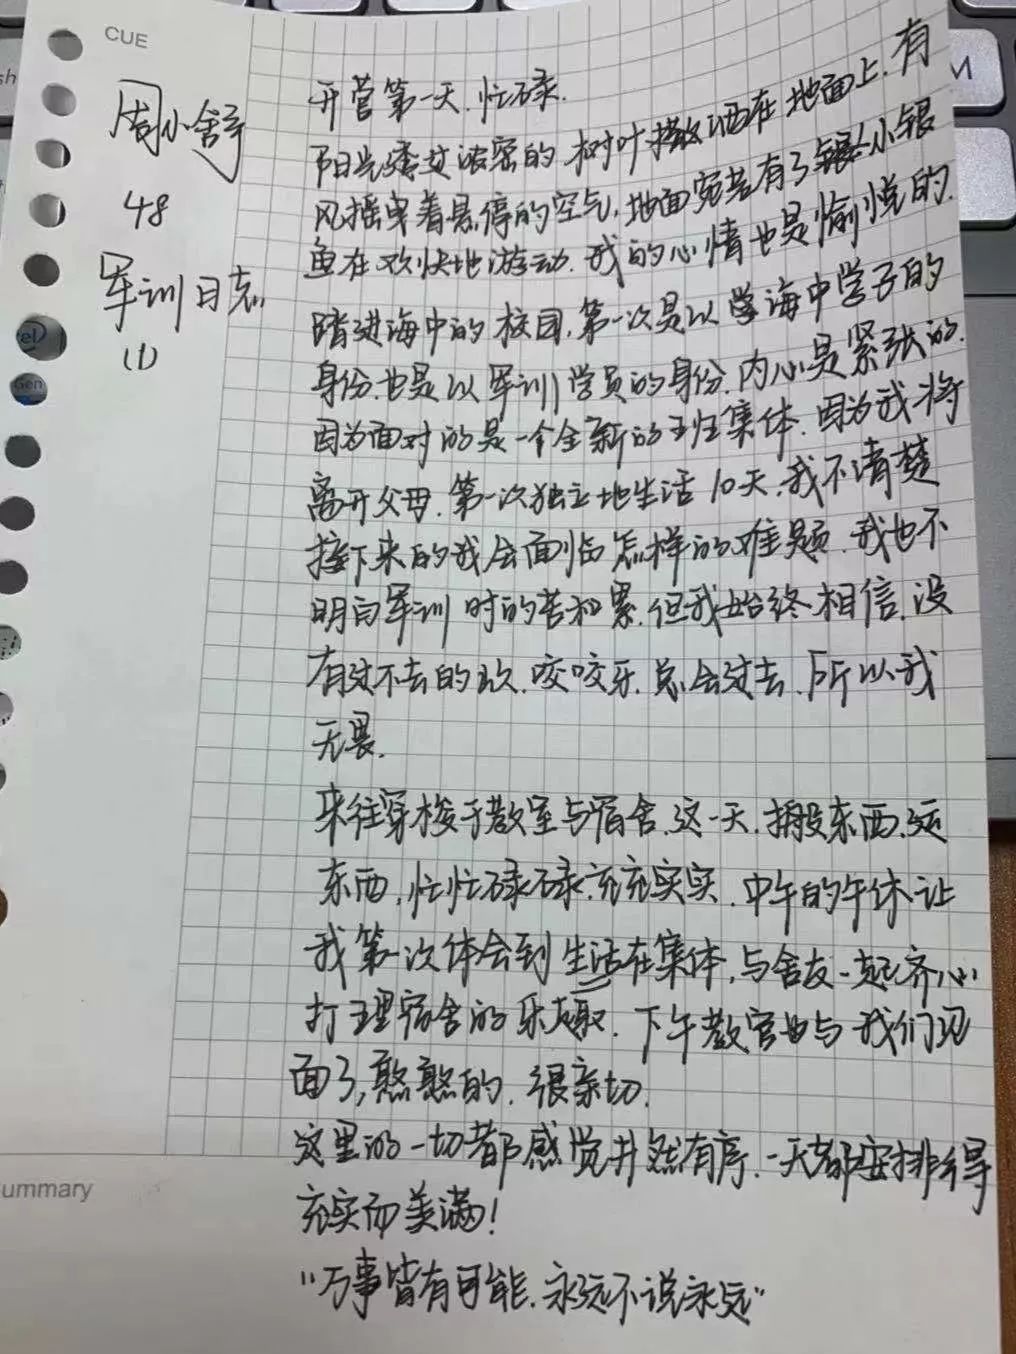 CUE
周小舒
48
军训日志
(1)
开营第一天.忙碌.
阳光透过浓密的树叶撒洒在地面上.有
风摇曳着悬停的空气,地面宛若有了小银
鱼在欢快地游动.我的心情也是愉悦的.
踏进海中的校园.第一次是以学海中学子的
身份.也是以军训学员的身份.内心是紧张的.
因为面对的是一个全新的班集体.因为我将
离开父母.第一次独立地生活10天.我不清楚
接下来的我会面临怎样的难题.我也不
明白军训时的苦和累.但我始终相信.没
有过不去的坎.咬咬牙.总会过去.所以我
无畏.
来往穿梭于教室与宿舍.这一天.搬东西.运
东西,忙忙碌碌.充充实实.中午的午休让
我第一次体会到生活在集体,与舍友一起齐心
打理宿舍的乐趣.下午教官也与我们见
面了,憨憨的.很亲切.
这里的一切都感觉井然有序.一天都安排得
充实而美满!
"万事皆有可能.永远不说永远"
ummary
M
sh
el
Gen